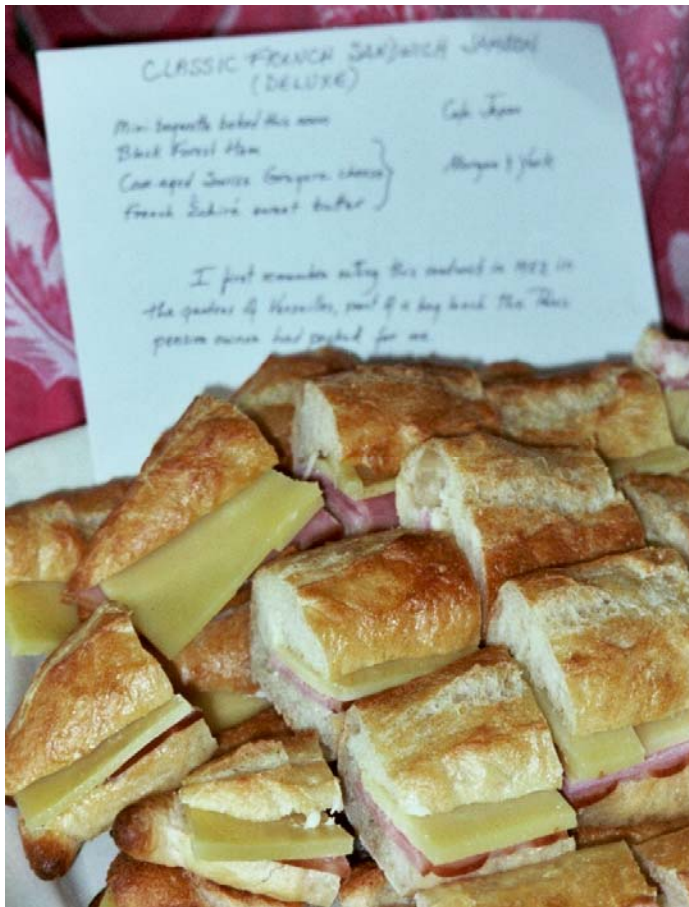 CLASSIC FRENCH SANDWICH JAMBON
(DELUXE)
Mini-baguette baked this morn Cafe Japon
Black Forest Ham
Cave-aged Swiss Gruyere cheese Morgan & York
French Échiré sweet butter
I first remember eating this sandwich in 1982 in
the gardens of Versailles, part of a bag lunch the Paris
pension owner had packed for me.